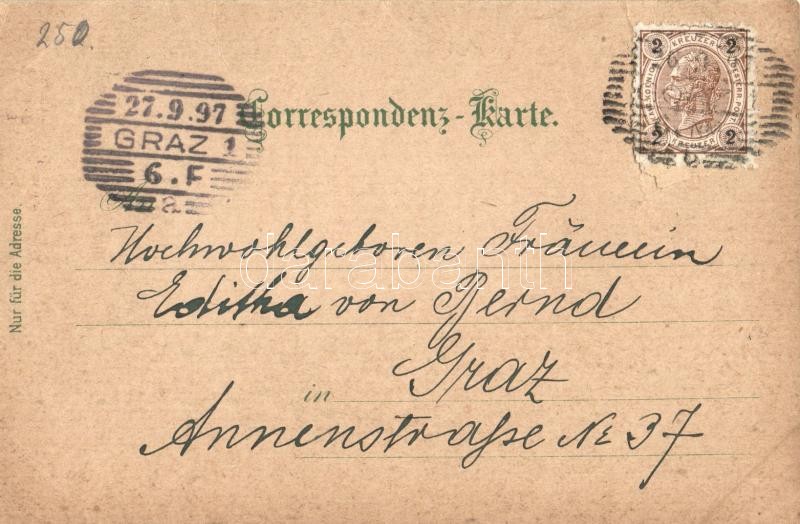 250.
27.9.97
GRAZ 1
6.F
a
Correspondenz-Karte.
2 KREUZER 2
2 KREUZER 2
An
Hochwohlgeboren Fräulein
Editha von Bernd
in Graz
Annenstraße № 37
Nur für die Adresse.
darabanth